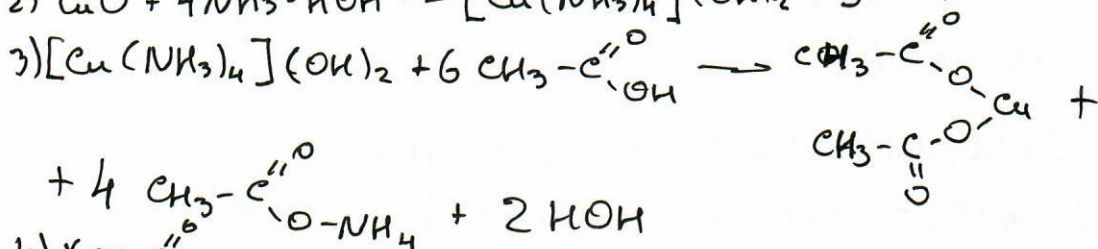 2) CuO + 4NH3·HOH [Cu(NH3)4](OH)2
3) [Cu(NH3)4](OH)2 + 6 CH3-C(=O)-OH ⟶ CH3-C(=O)-O-Cu-O-C(=O)-CH3 +
+ 4 CH3-C(=O)-O-NH4 + 2 HOH